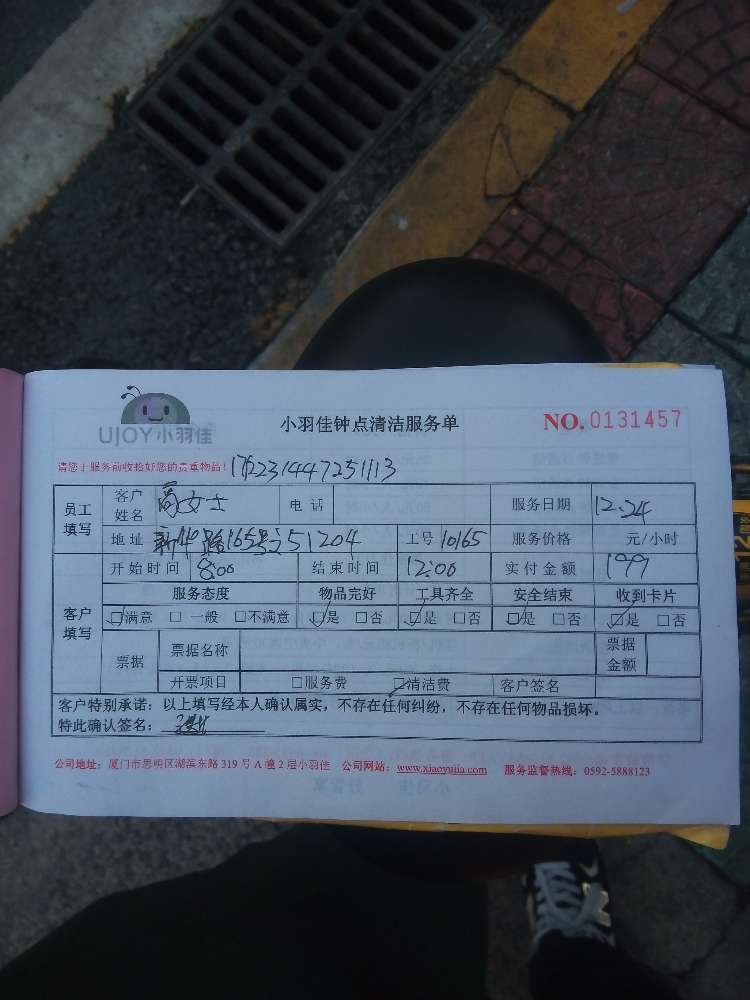 UJOY小羽佳
小羽佳钟点清洁服务单
NO.0131457
请您于服务前收拾好您的贵重物品!
员工填写 客户姓名 高女士 电话 服务日期 12.24
地址 新华路165号之51204 工号 10165 服务价格 元/小时
客户填写 开始时间 8:00 结束时间 12:00 实付金额 199
服务态度 物品完好 工具齐全 安全结束 收到卡片
☑满意 □一般 □不满意 ☑是 □否 ☑是 □否 ☑是 □否 ☑是 □否
票据 票据名称 票据金额
开票项目 □服务费 ☑清洁费 客户签名
客户特别承诺：以上填写经本人确认属实，不存在任何纠纷，不存在任何物品损坏。
特此确认签名：
公司地址：厦门市思明区湖滨东路 319 号 A 幢 2 层小羽佳 公司网站：www.xiaoyujia.com 服务监督热线：0592-5888123